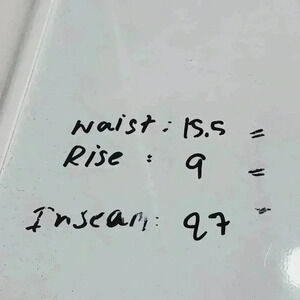 Waist: 15.5 =
Rise : 9 =
Inseam: 27 "